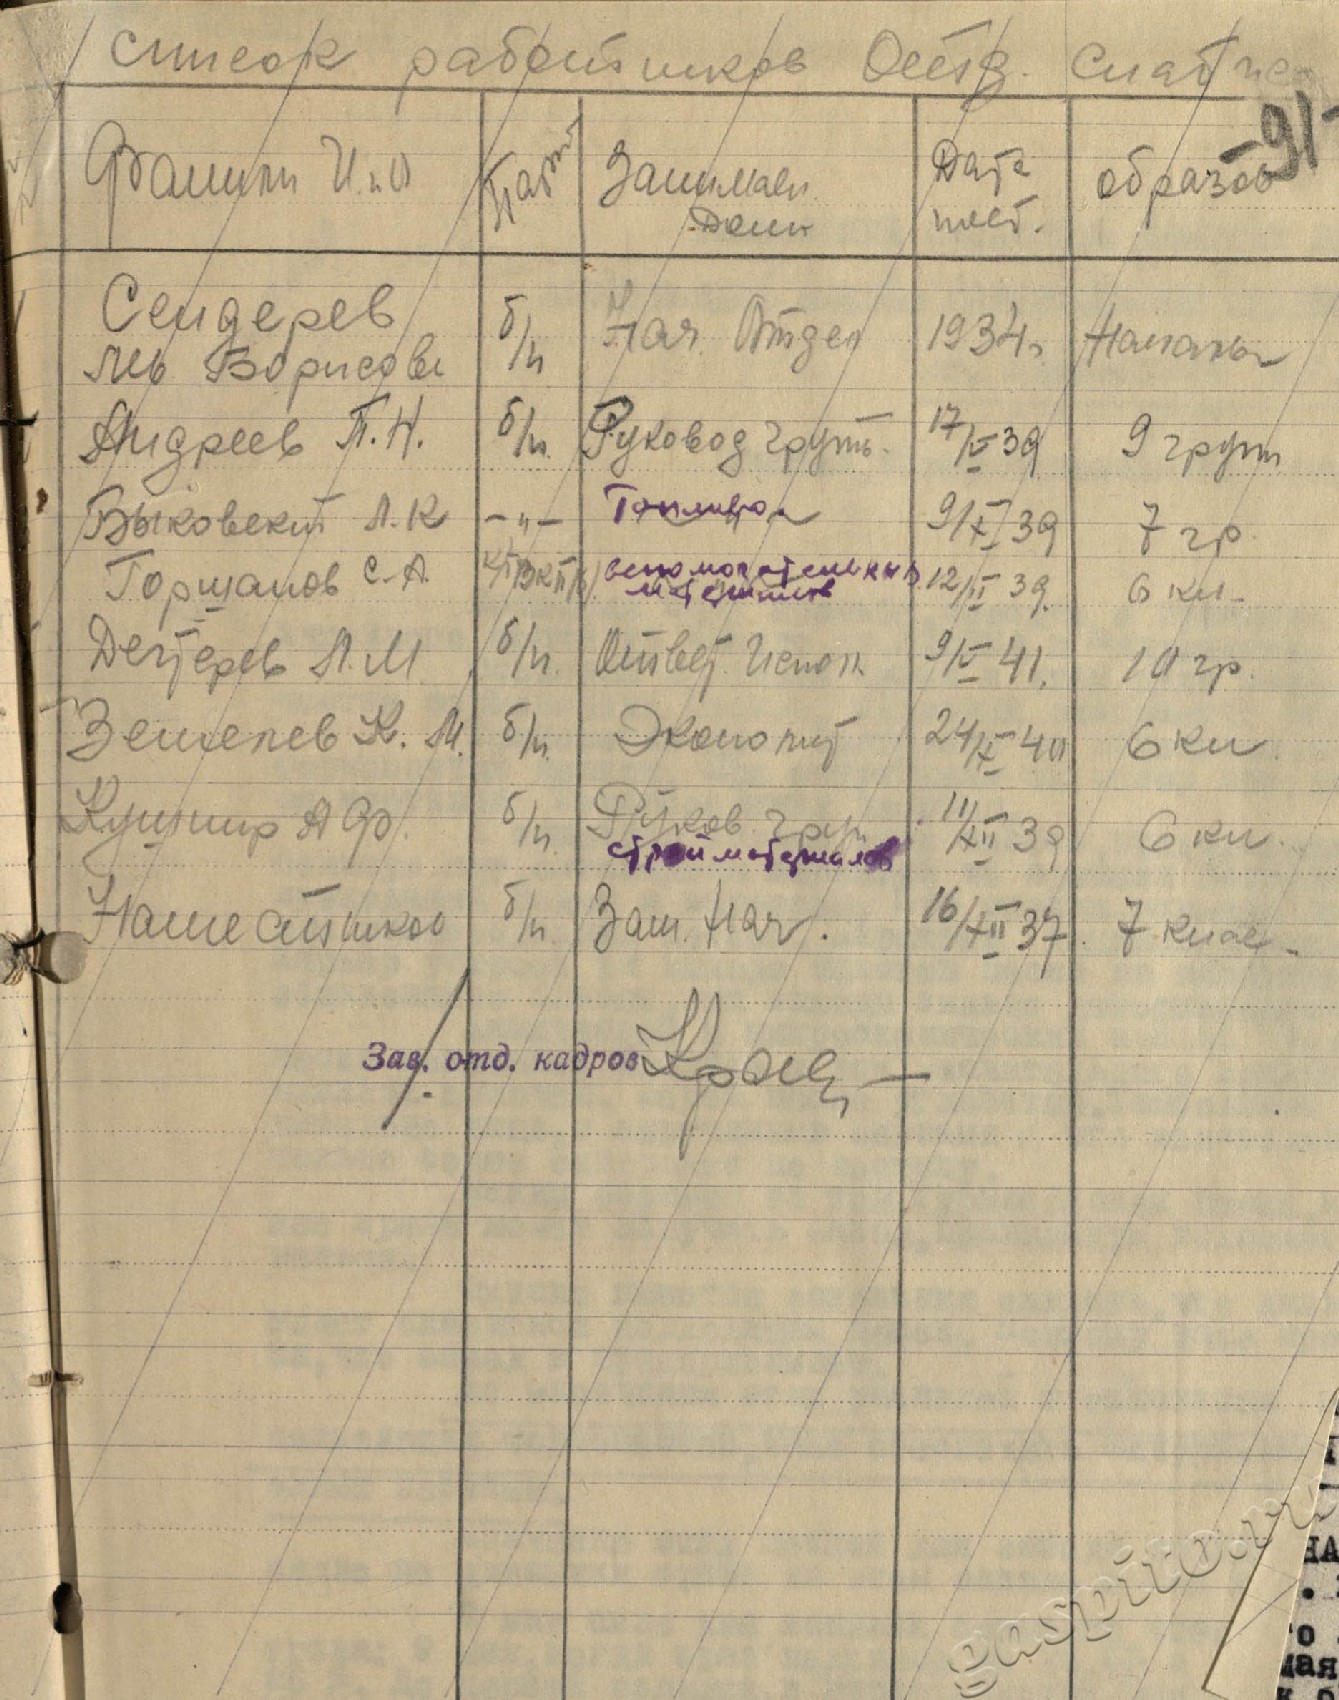 список работников Отд. Снабже
-91-
Фамили И. и О Парт Занимаем. Долж Дата пост. образов
Сендерев Лев Борисови б/п Нач. Отдел 1934г Начальн
Андреев П.Н. б/п. Руковод групп. 17/V 39 9 групп
Быковский Л.К -"- Топлива 9/XI 39 7 гр.
Горшанов С.А. вспомогательных материалов 12/II 39. 6 кл.
Дегтерев Л.М. б/п. Ответ. Исполн. 9/V 41. 10 гр.
К. М. б/п. Экономист 24/XI 40 6 кл.
Кушнир А Ф. б/п. Руков. груп стройматериалов 11/XII 39 6 кл.
б/п Зам. Нач. 16/XII 37. 7 клас.
Зав. отд. кадров
gaspito.ru